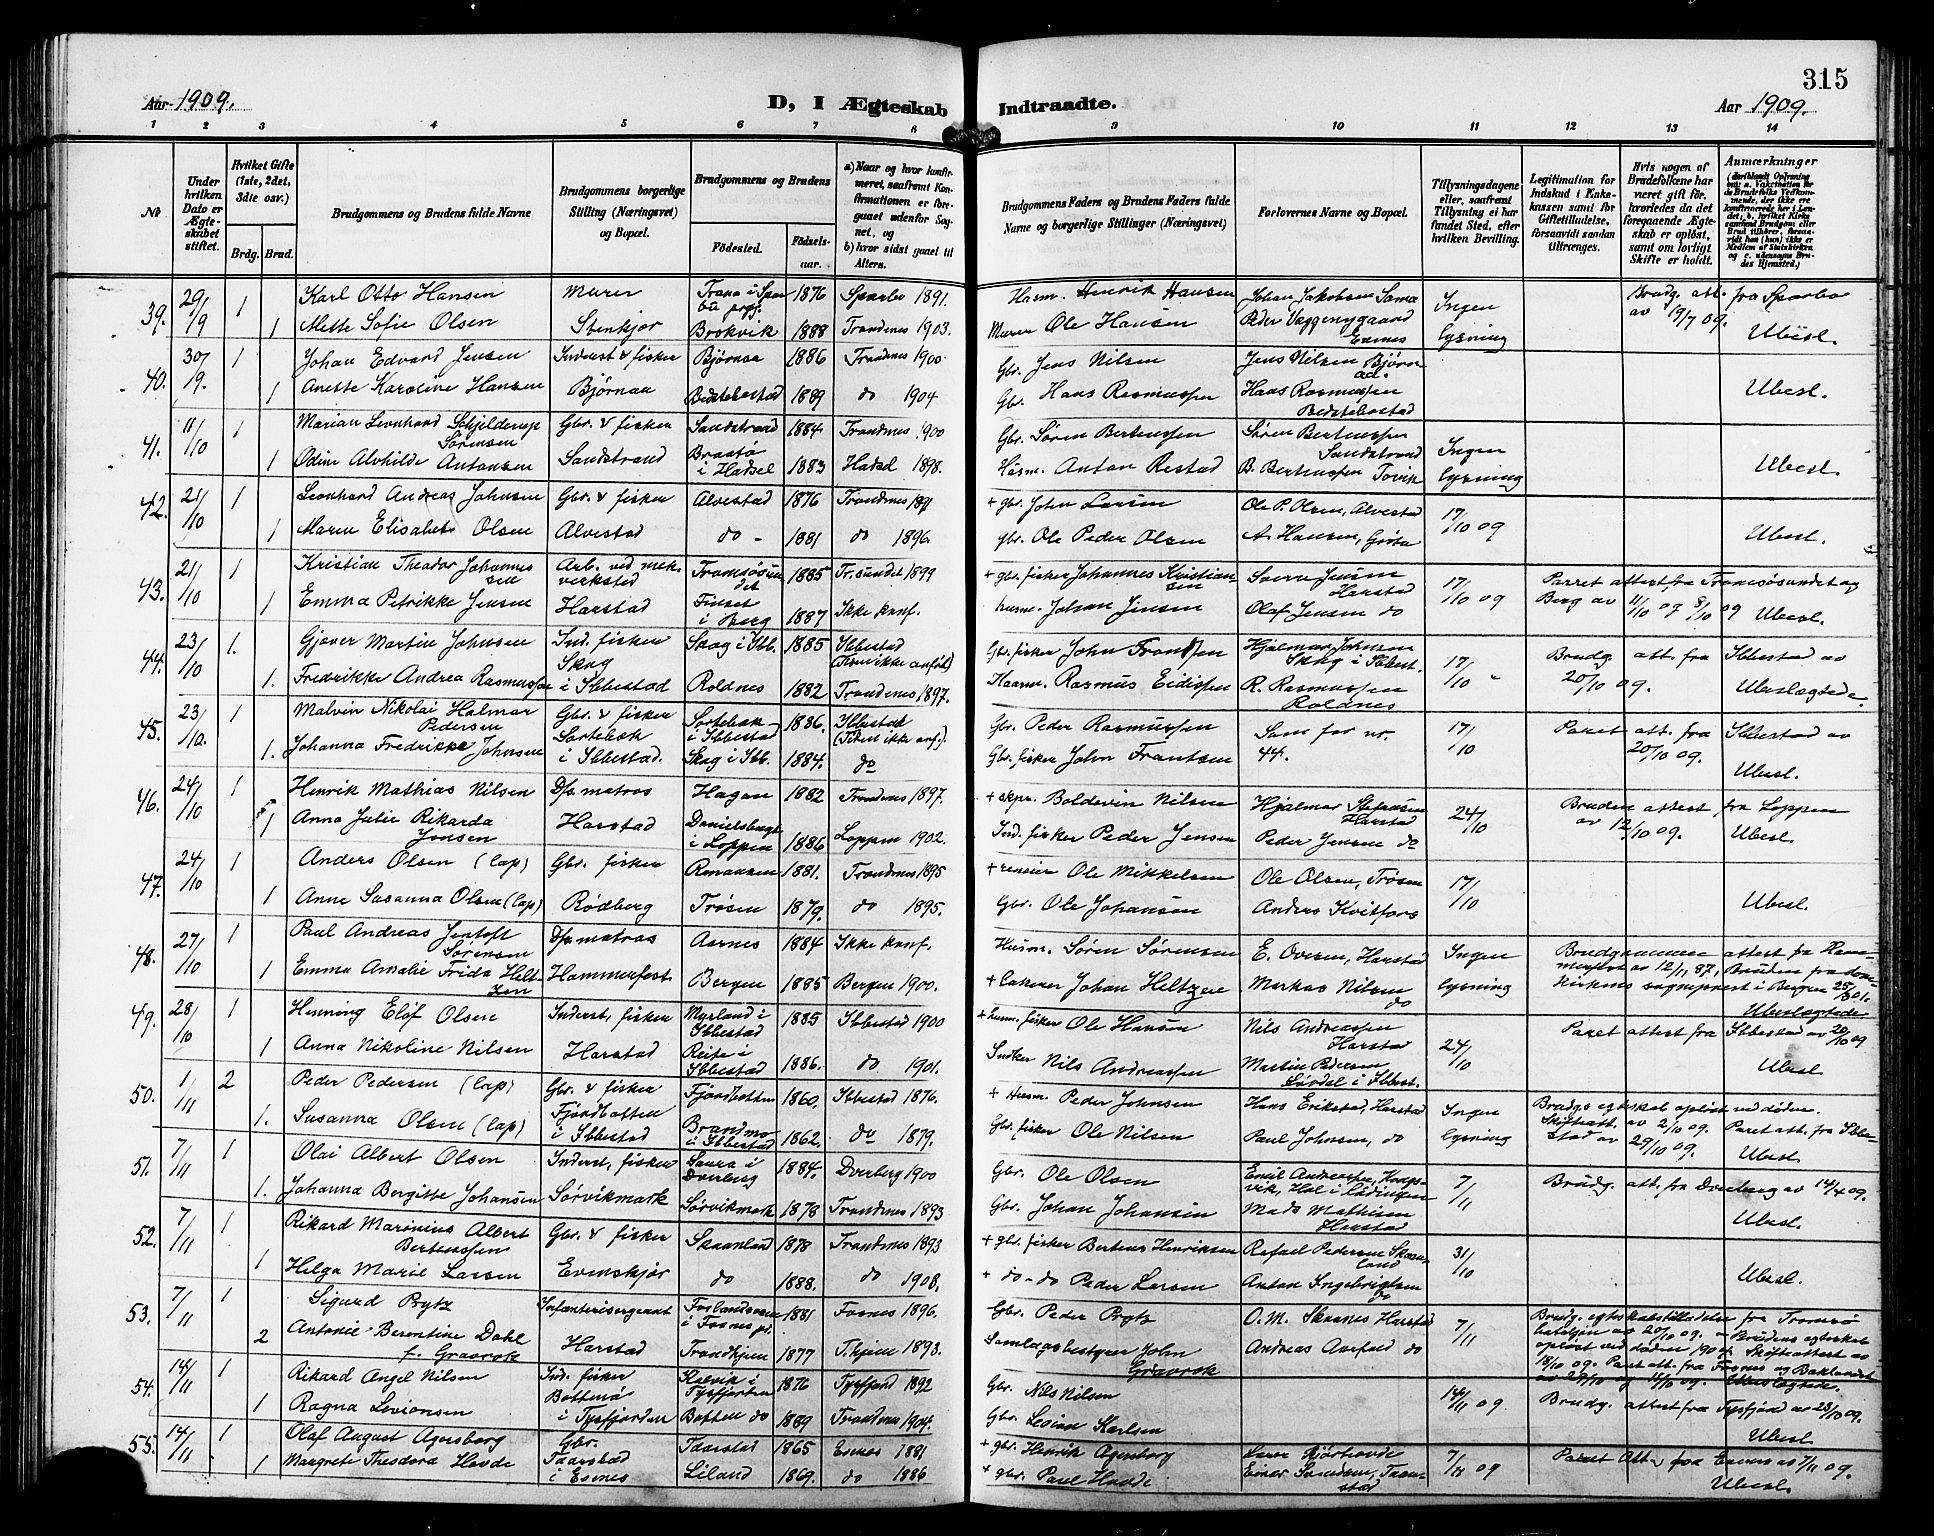 315
Aar 1909.
D, I Ægteskab Indtraadte.
Aar 1909.
1 2 3 4 5 6 7 8 9 10 11 12 13 14
No
Under hvilken Dato er Ægteskabet stiftet.
Hvilket Gifte (1ste, 2det, 3die osv.)
Brdg. Brud.
Brudgommens og Brudens fulde Navne
Brudgommens borgerlige Stilling (Næringsvei) og Bopæl.
Brudgommens og Brudens
Födested. Födselsaar.
a) Naar og hvor konfirmeret, saafremt Konfirmationen er foregaaet udenfor Sognet, og
b) hvor sidst gaaet til Alters.
Brudgommens Faders og Brudens Faders fulde Navne og borgerlige Stillinger (Næringsvei)
Forlovernes Navne og Bopæl.
Tillysningsdagene eller, saafremt Tillysning ei har fundet Sted, efter hvilken Bevilling.
Legitimation for Indskud i Enkekassen samt for Giftetilladelse, forsaavidt saadan tiltrænges.
Hvis nogen af Brudefolkene har været gift før, hvorledes da det foregaaende Ægteskab er opløst, samt om lovligt Skifte er holdt.
Anmærkninger
39. 29/19 1 Karl Otto Hansen Murer 1876 Sparbo 1891. Husm. Henrik Hansen Johan Jakobsen Sama Ingen Brudg. att. fra Sparbo
1 Mette Sofie Olsen Stenkjær Brokvik 1888 Trondenes 1903. Murer Ole Hansen Peder Væggenygaard Evenes lysning av 19/7 09. Ubesl.
40. 30/19. 1 Johan Edvard Jensen Inderst & fisker Bjørnaa 1886 Trondenes 1900 Gbr. Jens Nilsen Jens Nilsen
1 Anette Karoline Hansen Bjørnaa 1889 do 1904 Gbr. Hans Rasmussen Hans Rasmussen Ubesl.
41. 11/10 1 Marian Leonhard Schjelderup Sørensen Gbr. & fisker Sandstrand 1884 Trondenes 1900 Gbr. Søren Bertenssen Søren Bertenssen Sandstrand Ingen
1 Odine Alvhilde Antonsen Sandstrand i Hadsel 1883 Hadsel 1898. Husm. Anton Restad B. Bertenssen Tovik lysning Ubesl.
42. 21/10 1 Leonhard Andreas Johnsen Gbr. & fisker Alvestad 1876 Trondenes 1891 + gbr. John Larsen Ole P. Olsen, Alvestad 17/10 09
1 Maren Elisabet Olsen Alvestad do - 1881 do 1896 gbr. Ole Peder Olsen A. Hansen, Ubesl.
43. 21/10 1 Kristian Theodor Johannessen Arb. ved mek. verksted Tromsøsundet 1885 Tr.sundet 1899 + gbr. fisker Johannes Kristiansen Jensen Harstad 17/10 09 Parret attest fra Tromsøsundet og
1 Emma Petrikke Jensen Harstad Finset i Berg 1887 Ikke konf. husm. Johan Jensen Olaf Jensen do Berg av 11/10 09 8/10 09 Ubesl.
44. 23/10 1. Gjøver Martin Johnsen Ind. fisker Skog i Ibb. 1885 Ibbestad (Tiden ikke anført) Gbr. fisker John Frantsen Hjalmar Johnsen Skog i Ibbest. 17/10 " Brudg. att. fra Ibbestad av
1. Fredrikke Andrea Rasmussen Skog i Ibbestad Roldnes 1882 Trondenes 1897. Rasmus Eidissen R. Rasmussen Roldnes 20/10 09. Ubeslægtede.
45. 23/10. 1 Malvin Nikolai Halmar Pedersen Gbr. & fisker Sørtebæk i Ibbestad 1886. Ibbestad (Tiden ikke anf.). Gbr. Peder Rasmussen Som for nr. 17/10 Paret att. fra Ibbestad av
1. Johanna Fredrikke Johnsen Sørtebæk i Ibbestad. Skog i Ibb. 1884. do Gbr. fisker John Frantsen 44. 20/10 09. Ubesl.
46. 24/10 1 Henrik Mathias Nilsen Dfs. matros Hagan 1882 Trondenes 1897. + skpr. Boldevin Nilsen Hjalmar Stefansen Harstad 24/10 Bruden attest fra Loppen
1 Anna Julie Rikarda Jensen Harstad i Loppen 1886 Loppen 1902. Ind. fisker Peder Jensen Peder Jensen do av 12/10 09. Ubesl.
47. 24/10 1 Anders Olsen (lap) Gbr. fisker 1881. Trondenes 1895 + reneier Ole Mikkelsen Ole Olsen, Trøsen 17/10
1 Anne Susanna Olsen (lap) Rødberg Trøsen 1879. do 1895. Gbr. Ole Johansen Anders Kvitfors Ubesl.
48. 27/10 1 Paul Andreas Jentoft Sørensen Dfs. matros Aarnes 1884 Ikke konf. Husm. Søren Sørensen E. Oversen, Harstad Ingen Brudgommen attest fra Hammerfest av 12/11 87, Bruden fra
1 Emma Amalie Frida Heltzen Hammerfest Bergen 1885 Bergen 1900. + Johan Heltzen Markus Nilsen do lysning sogneprest i Bergen 25/8 01. Ubeslægtede
49. 28/10 1 Henning Elof Olsen Inderst, fisker Myrland i Ibbestad 1885 Ibbestad 1900 + husm. fisker Ole Hansen Nils Andreassen Harstad 24/10 Paret attest fra Ibbestad av 20/10 09
1 Anna Nikoline Nilsen Harstad i Ibbestad 1886. do 1901. Snedker Nils Andreassen Martin Pedersen i Ibbest. Ubesl.
50. 1/11 2 Peder Pedersen (lap) Gbr. & fisker Fjordbotten 1860. Ibbestad 1876. + Husm. Peder Johnsen Hans Erikstad, Harstad Ingen Brudgs egteskab opløst ved døden.
1. Susanna Olsen (lap) Fjordbotten i Ibbestad Brandmo i Ibbestad 1862. do 1879. Gbr. fisker Ole Nilsen Paul Johnsen, do lysning Skifteatt. av 2/10 09. Paret att. fra Ibbestad av 29/10 09. Ubesl.
51. 7/11 1 Olai Albert Olsen Inderst, fisker Saura i Dverberg 1884. Dverberg 1900 Gbr. Ole Olsen Emil Andreassen, 7/11 Brudg. att. fra Dverberg av 14/4 09.
1. Johanna Bergitte Johansen Sørvikmark Sørvikmark 1878 Trondenes 1893 Gbr. Johan Johansen Mads Mathisen Harstad Ubesl.
52. 7/11 1 Rikard Maronius Albert Bertenssen Gbr. & fisker Skaanland 1878 Trondenes 1893 + gbr. fisker Bertens Henriksen Rafael Pedersen Skaanland 31/10
1 Helga Marie Larsen Evenskjær do 1888. do 1908. + do - do Peder Larsen Anton Ingebrigtsen do Ubesl.
53. 7/11 1 Sigurd Prytz Infanterisergeant i Fosnes 1881 Fosnes 1896. Gbr. Peder Prytz O. M. Skaanes Harstad 7/11 Brudg. egteskabstilladelse fra Tromsø bataljon av 20/10 09. - Brudens egteskab opløst ved døden 1904. Skifteattest av
2 Antonie Berentine Dahl f. Gravrok Harstad Trondhjem 1877 T.hjem 1893. Samlagsbestyrer John Gravrok Andreas Aarfod do 18/10 09. Paret att. fra Fosnes og Baklandet Ubeslægtede.
54. 14/11 1 Rikard Angel Nilsen Ind. fisker Kalvik i Tysfjorden 1876 Tysfjord 1892 Gbr. Nils Nilsen 14/11 09. Brudg. attest fra Tysfjord av 23/10 09.
1 Ragna Levionsen i Tysfjorden Botten do 1889 Trondenes 1904. Gbr. Karlsen Ubesl.
55. 14/11 1 Olaf August Agersborg Gbr. Taarstad 1865 Evenes 1881 + gbr. Henrik Agersborg 7/11 09 Paret Att. fra Evenes 7/11 09.
1 Margrete Theodora Havde Taarstad i Evenes Liland 1869. do 1886 + gbr. Paul Havde Taarstad Ubesl.